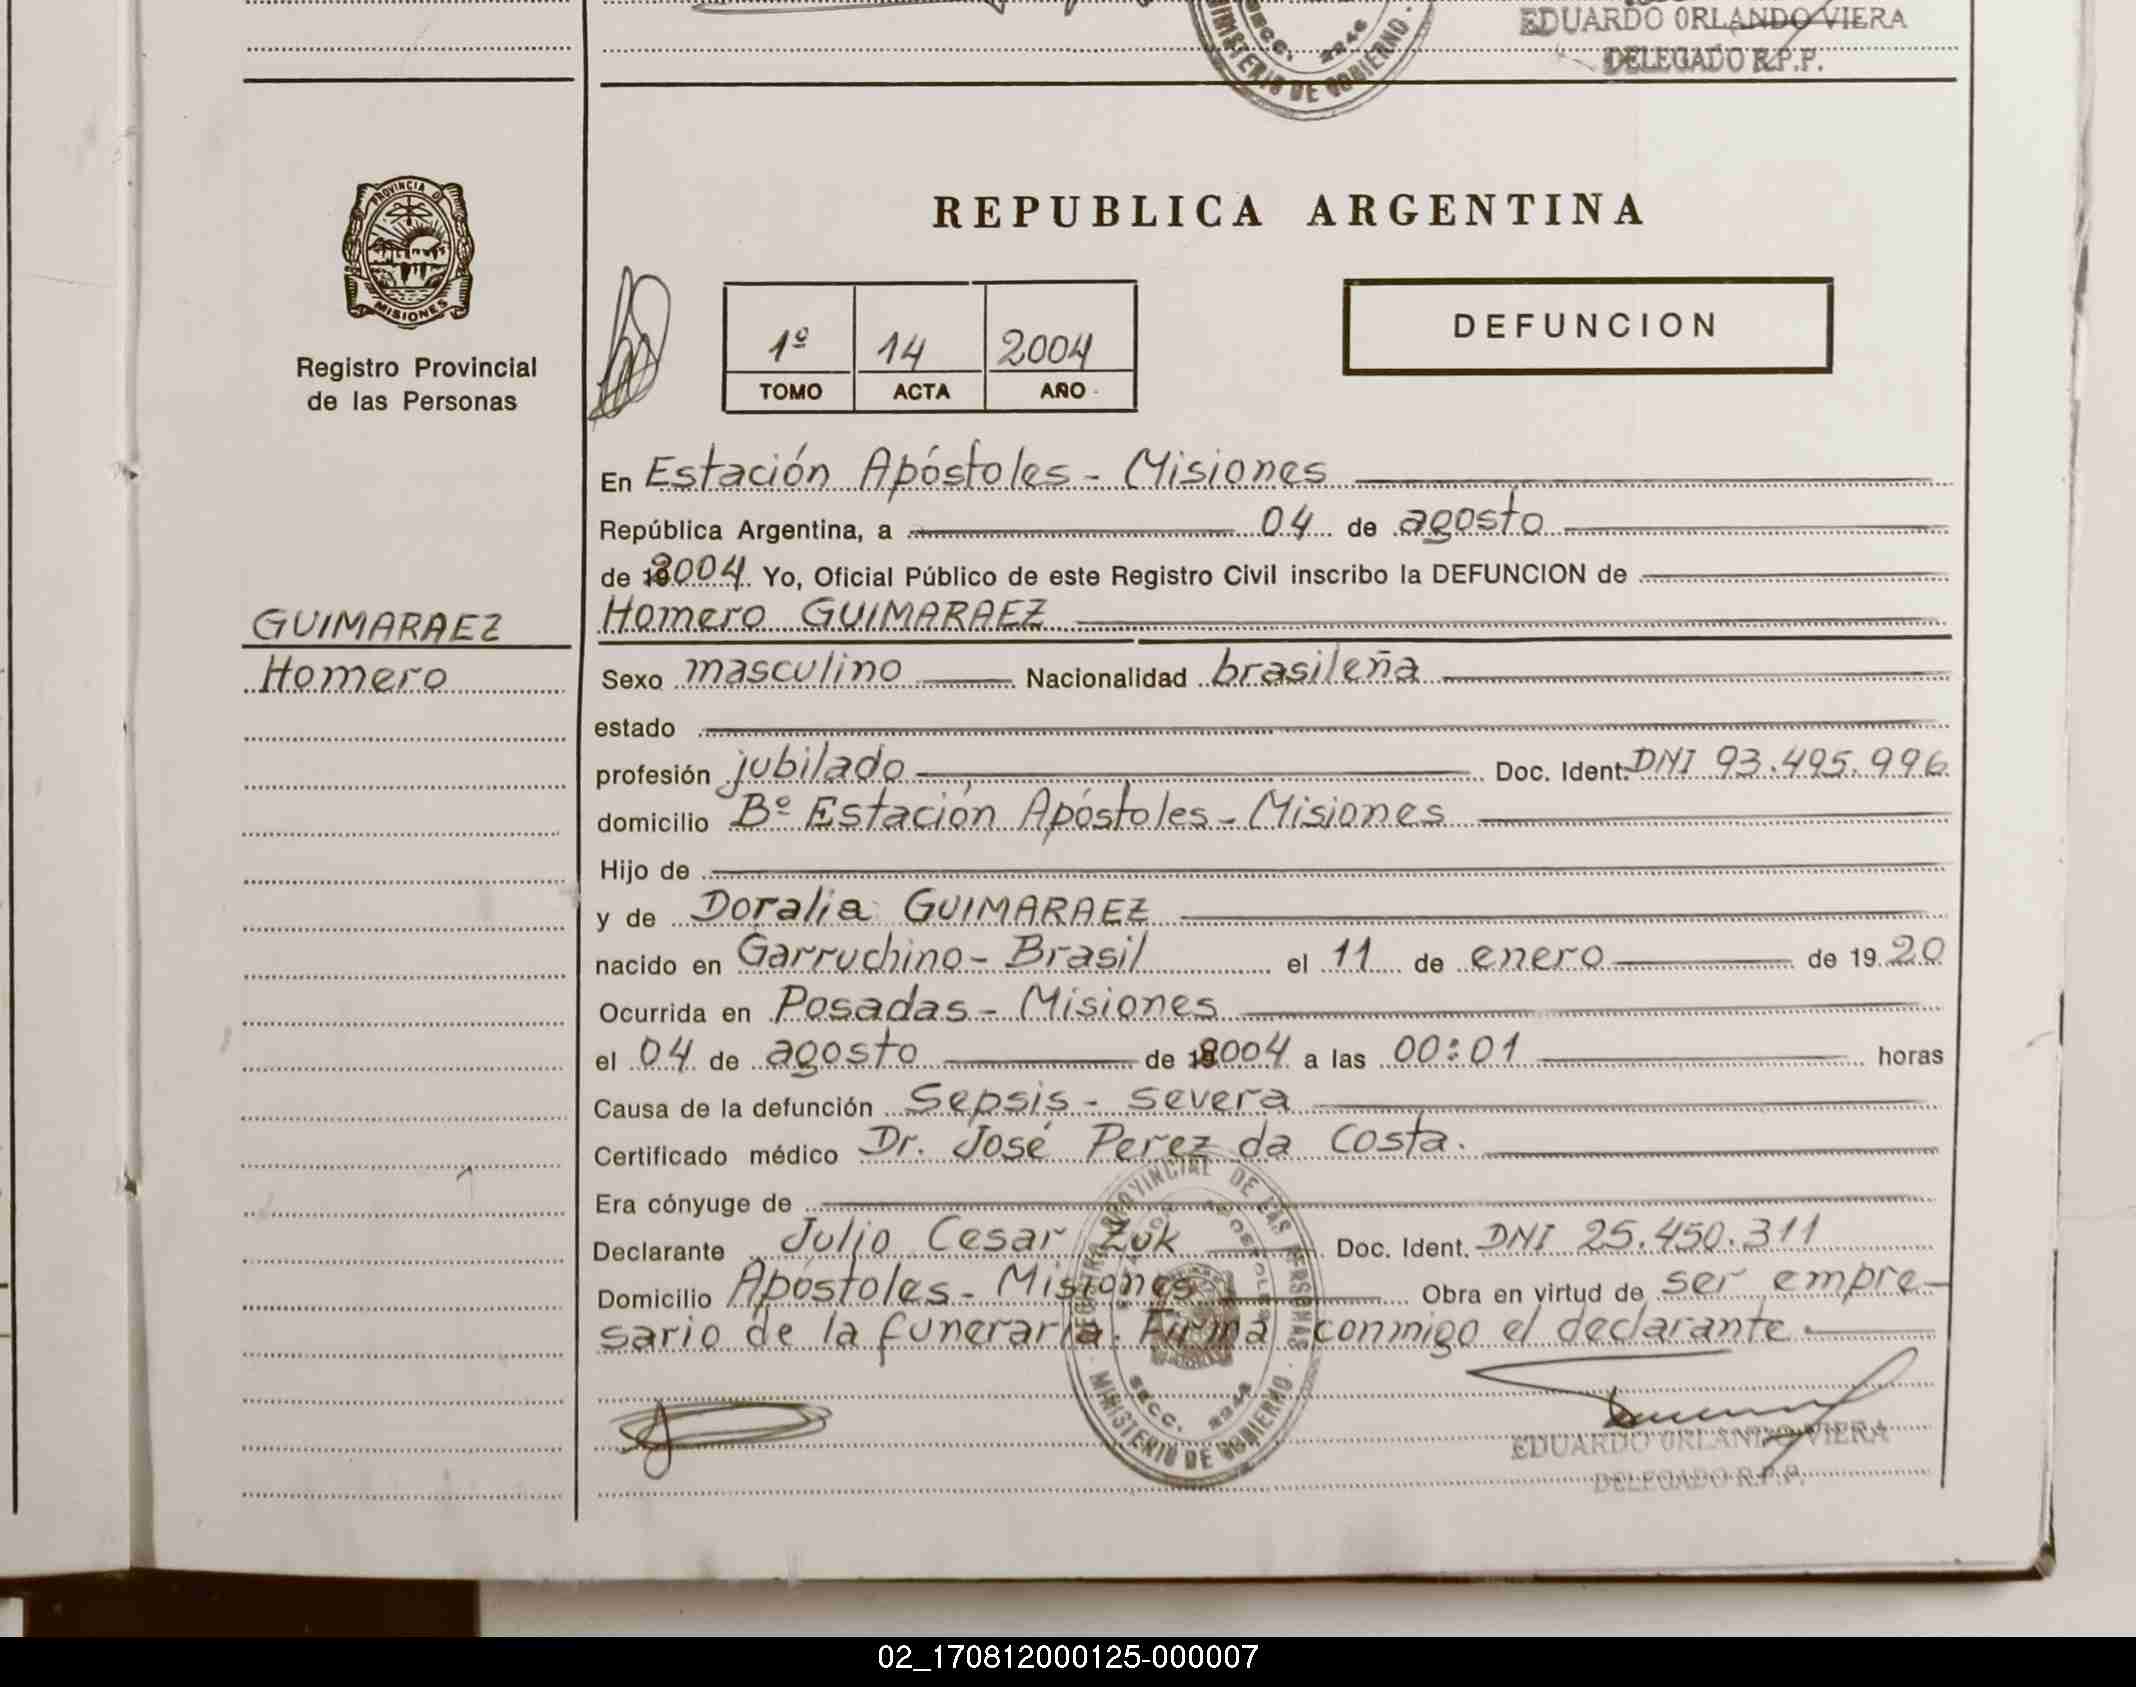 EDUARDO ORLANDO VIERA
DELEGADO R.P.P.
SECC. 2246
MINISTERIO DE GOBIERNO
PROVINCIA DE
MISIONES
Registro Provincial
de las Personas
REPUBLICA ARGENTINA
1º 14 2004
TOMO ACTA AÑO
DEFUNCION
En Estación Apóstoles - Misiones
República Argentina, a 04 de agosto
de 2004 Yo, Oficial Público de este Registro Civil inscribo la DEFUNCION de
GUIMARAEZ
Homero
Homero GUIMARAEZ
Sexo masculino Nacionalidad brasileña
estado
profesión jubilado Doc. Ident. DNI 93.495.996
domicilio Bº Estación Apóstoles - Misiones
Hijo de
y de Doralia GUIMARAEZ
nacido en Garruchino - Brasil el 11 de enero de 1920
Ocurrida en Posadas - Misiones
el 04 de agosto de 2004 a las 00:01 horas
Causa de la defunción Sepsis - severa
Certificado médico Dr. José Perez da Costa.
Era cónyuge de
Declarante Julio Cesar Zuk Doc. Ident. DNI 25.450.311
Domicilio Apóstoles - Misiones Obra en virtud de ser empre-
sario de la funeraria. Firma conmigo el declarante.
REGISTRO PROVINCIAL DE LAS PERSONAS
APOSTOLES
SECC. 2246
MINISTERIO DE GOBIERNO
EDUARDO ORLANDO VIERA
DELEGADO R.P.P.
02_170812000125-000007